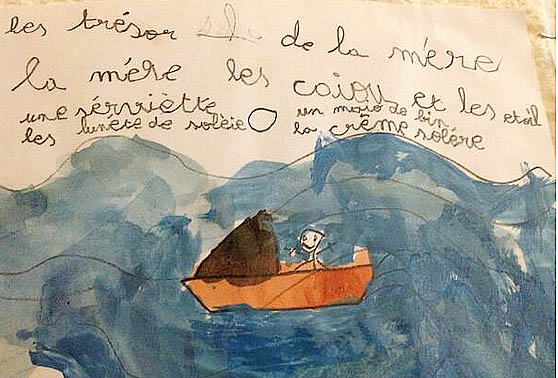 les trésor de la mère
la mère les caiou et les etoil
une sérviètte un maio de bin
les lunete de soleie la crême solére